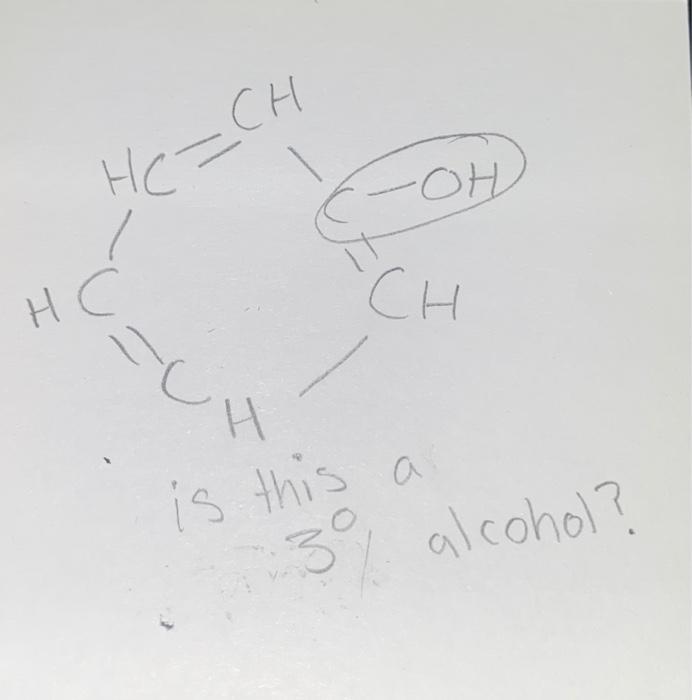 CH
HC
C-OH
HC
CH
CH
is this a
3° alcohol?